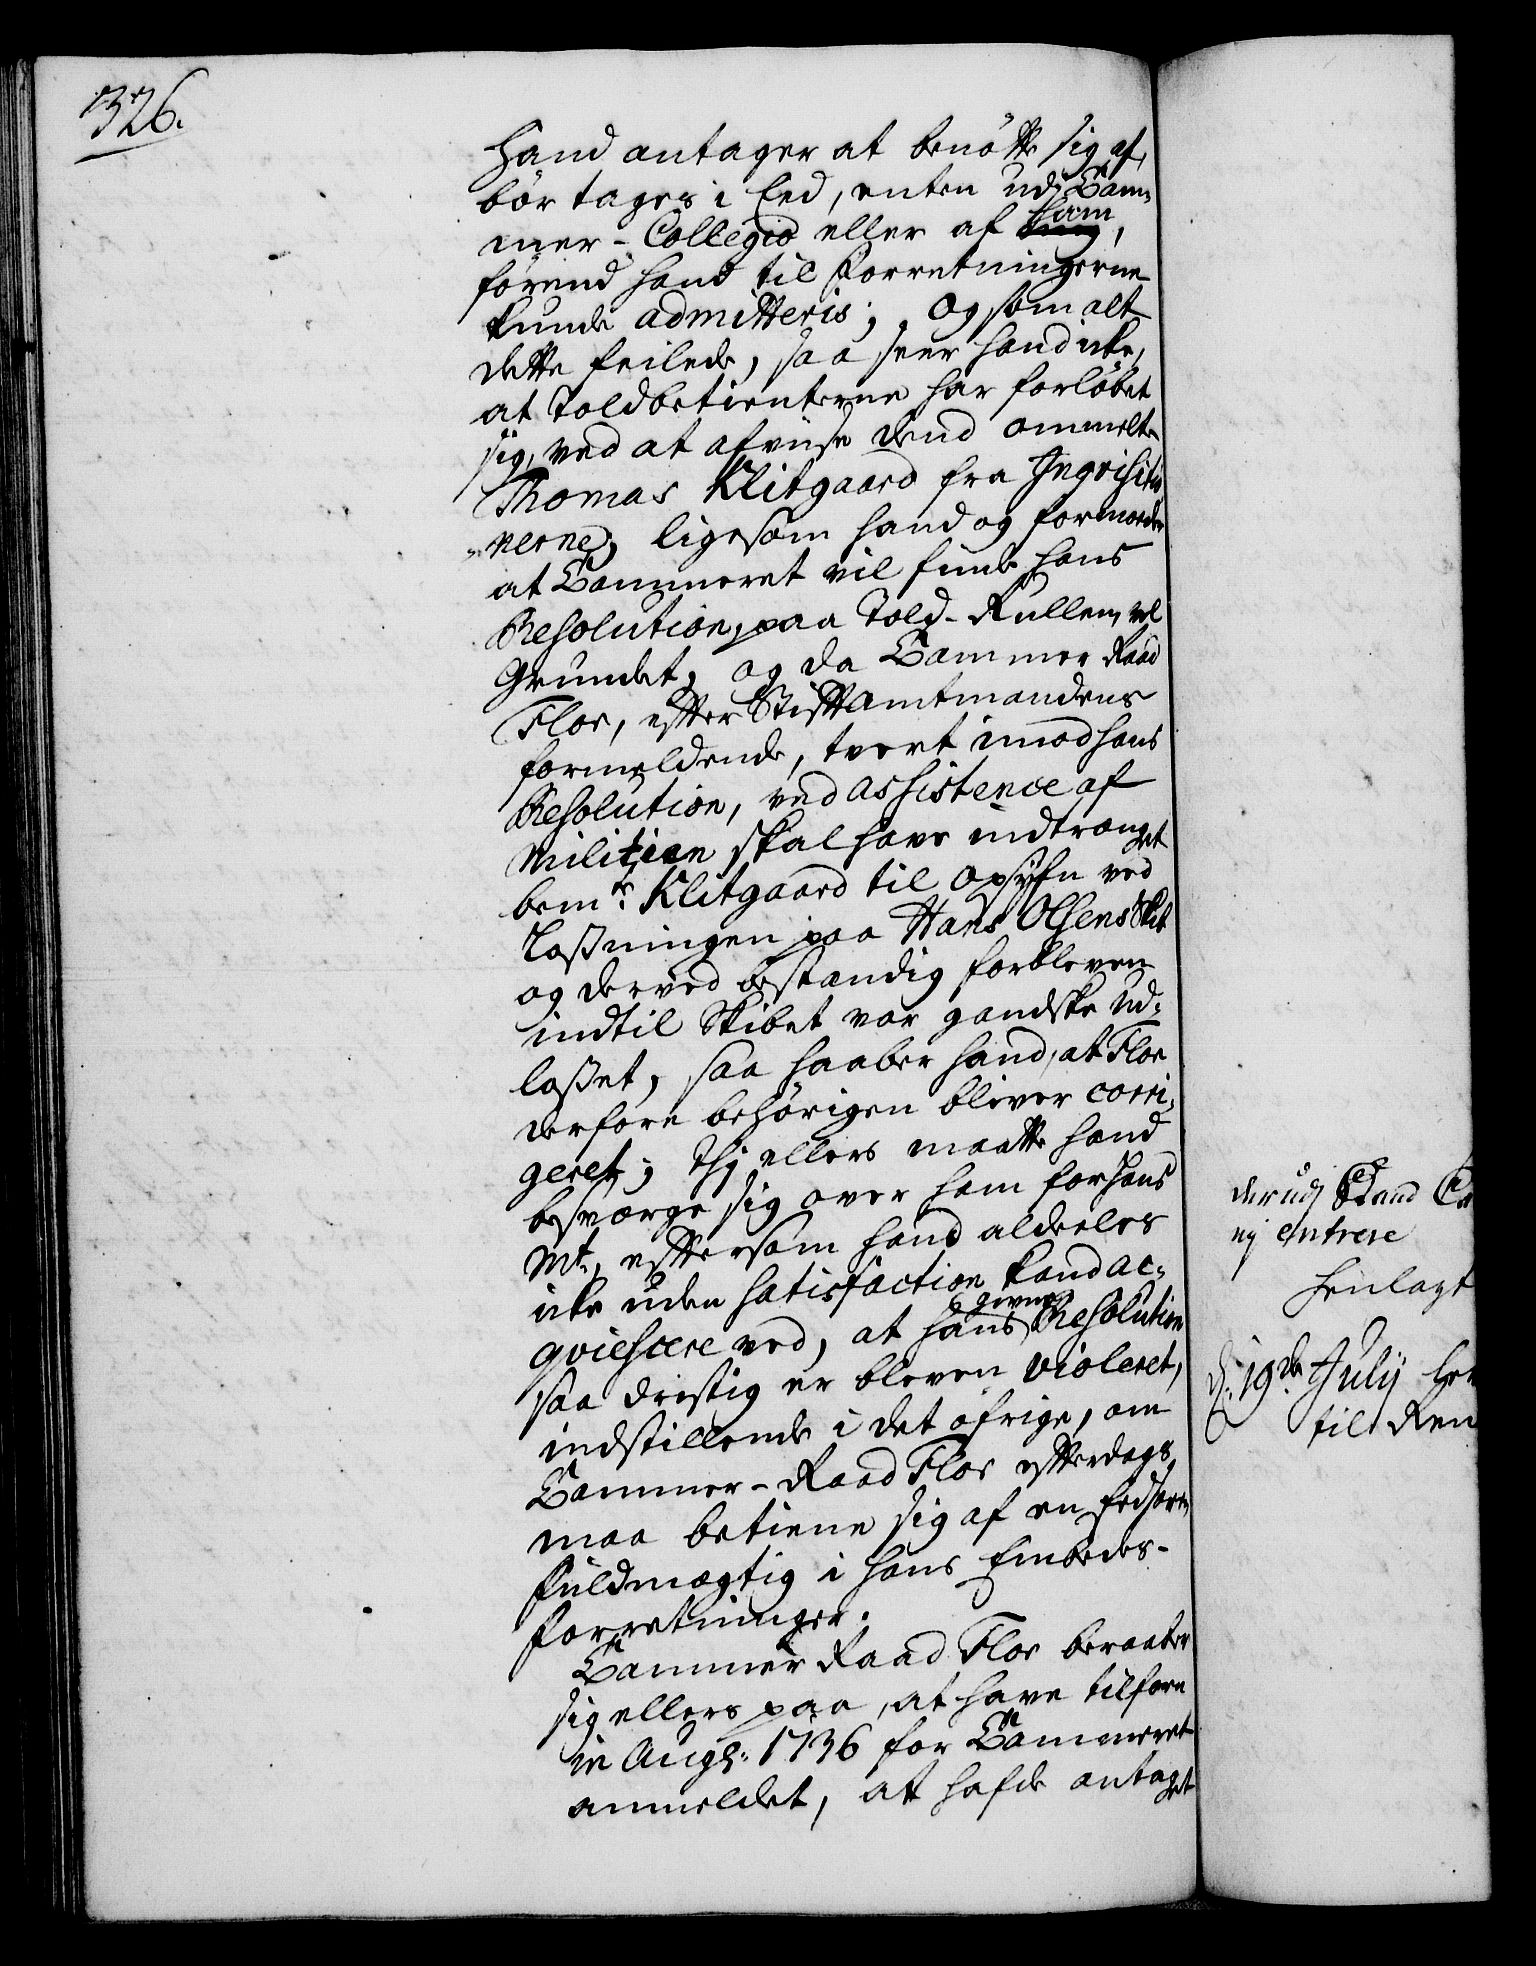 326.
hand antager at benøtte sig af,
bør tages i Eed, enten udj Cam¬
mer-Collegio eller af ham,
førend hand til Forretningerne
kunde admitteris; og som alt
dette feilede, saa seer hand icke,
at Toldbetienterne har forløbet
sig, ved at afviise dend ommelte
Thomas Klitgaard fra Inqvisitio
nerne, ligesom hand og formoder
at Cammeret vil finde hans
Resolution, paa Told-Rullen, vel
Grundet, og da Cammer Raad
Flor, efter Stiftamtmandens
formeldende, tvert imod hans
Resolution, ved assistence af
Militien skal have indtrænget
bemte. Klitgaard til opsyn ved
Losningen paa Hans Olsens Skib
og derved bestandig forbleven
indtil Skibet var gandske ud¬
losset, saa haaber hand, at Flor
derfore behørigen bliver corri¬
geret; Thj ellers maatte hand
besværge sig over ham for hans
Mt., eftersom hand aldeeles
icke uden satisfaction kand ac¬
qviescere ved, at hans givne Resolution
saa dristig er bleven violeret,
indstillende i det øfrige, om
Cammer-Raad Flor efterdags
maa betiene sig af en Eedsoren
Fuldmægtig i hans Embeds-
Forretninger.
Cammer Raad Flor beraaber
sig ellers paa, at have tilforn
in Aug: 1736 for Cammeret
anmeldet, at hafde antaget
derudj
ej entrere
henlagt
d: 19de Julij
til Ren